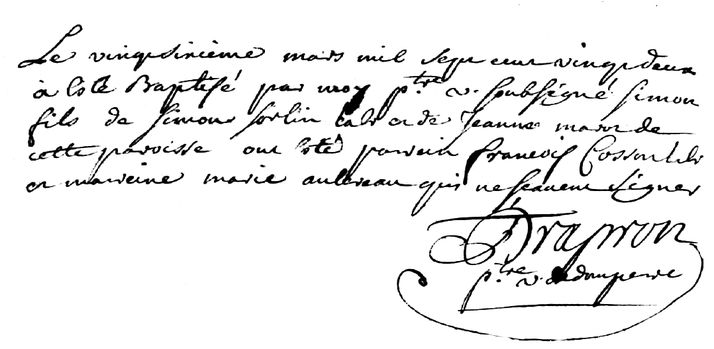 Le vingtsixième mars mil sept cent vingt deux
à esté Baptisé par moy p.tre v. soubségné simon
fils de simon sorlin lab et de Jeanne maror de
cette paroisse ont esté parein francois Cosson lab
et mareine marie aubreau qui ne scaventségner
Drapron
p.tre v. de domperre